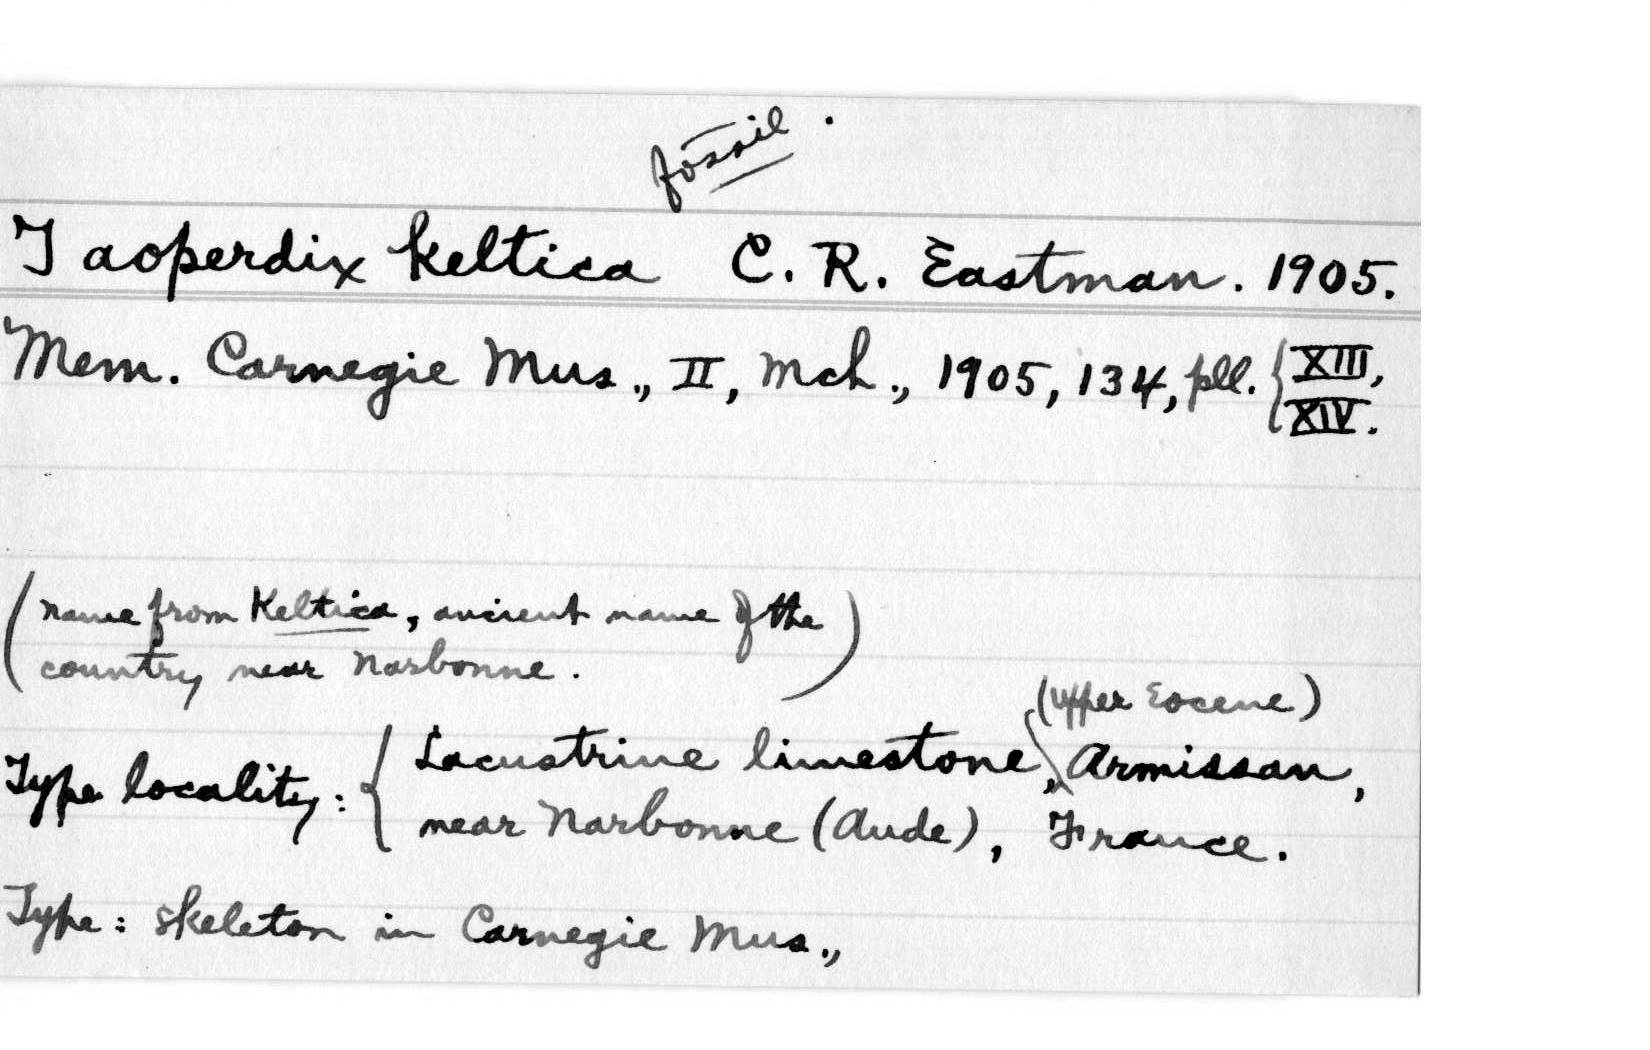 fossil.
Taoperdix keltica C. R. Eastman. 1905.
Mem. Carnegie Mus., II, Mch., 1905, 134, pll. { XIII,
XIV.
(name from Keltica, ancient name of the
country near Narbonne.)
(Upper Eocene)
Type locality: { Lacustrine limestone, Armissan,
near Narbonne (Aude), France.
Type: skeleton in Carnegie Mus.,